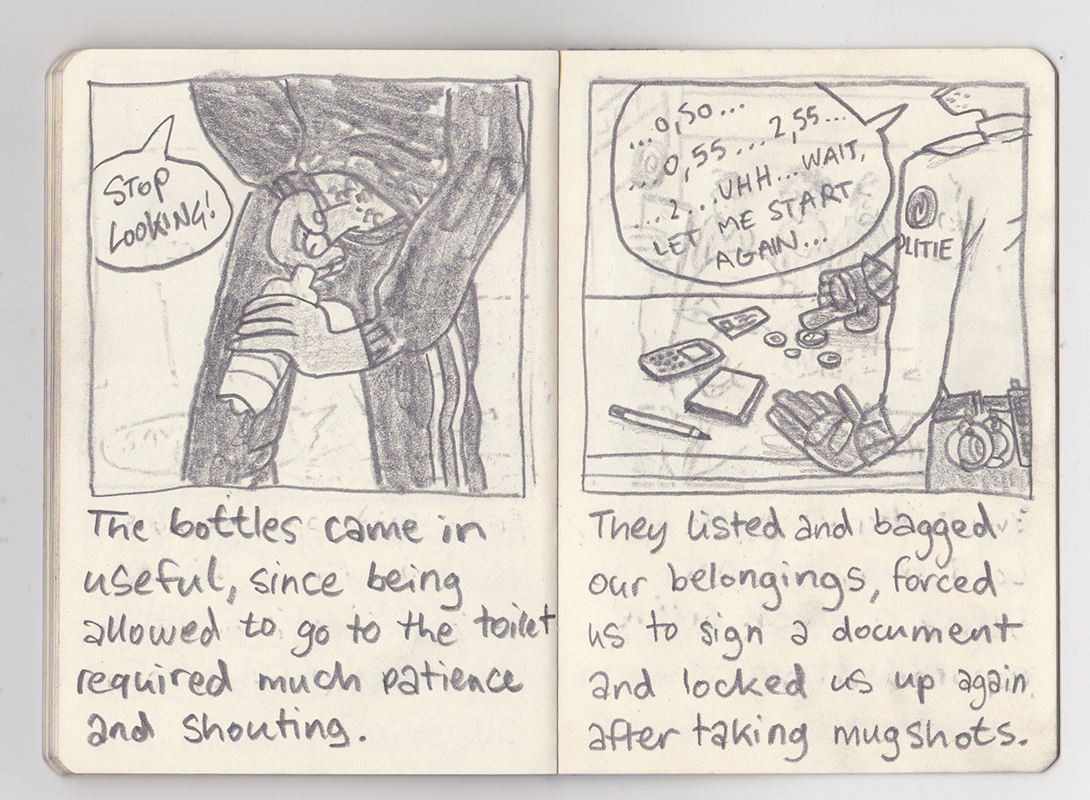 STOP
LOOKING!
The bottles came in
useful, since being
allowed to go to the toilet
required much patience
and shouting.
...0,50...
...0,55... 2,55...
...2...UHH...WAIT,
LET ME START
AGAIN...
OLITIE
They listed and bagged
our belongings, forced
us to sign a document
and locked us up again
after taking mugshots.